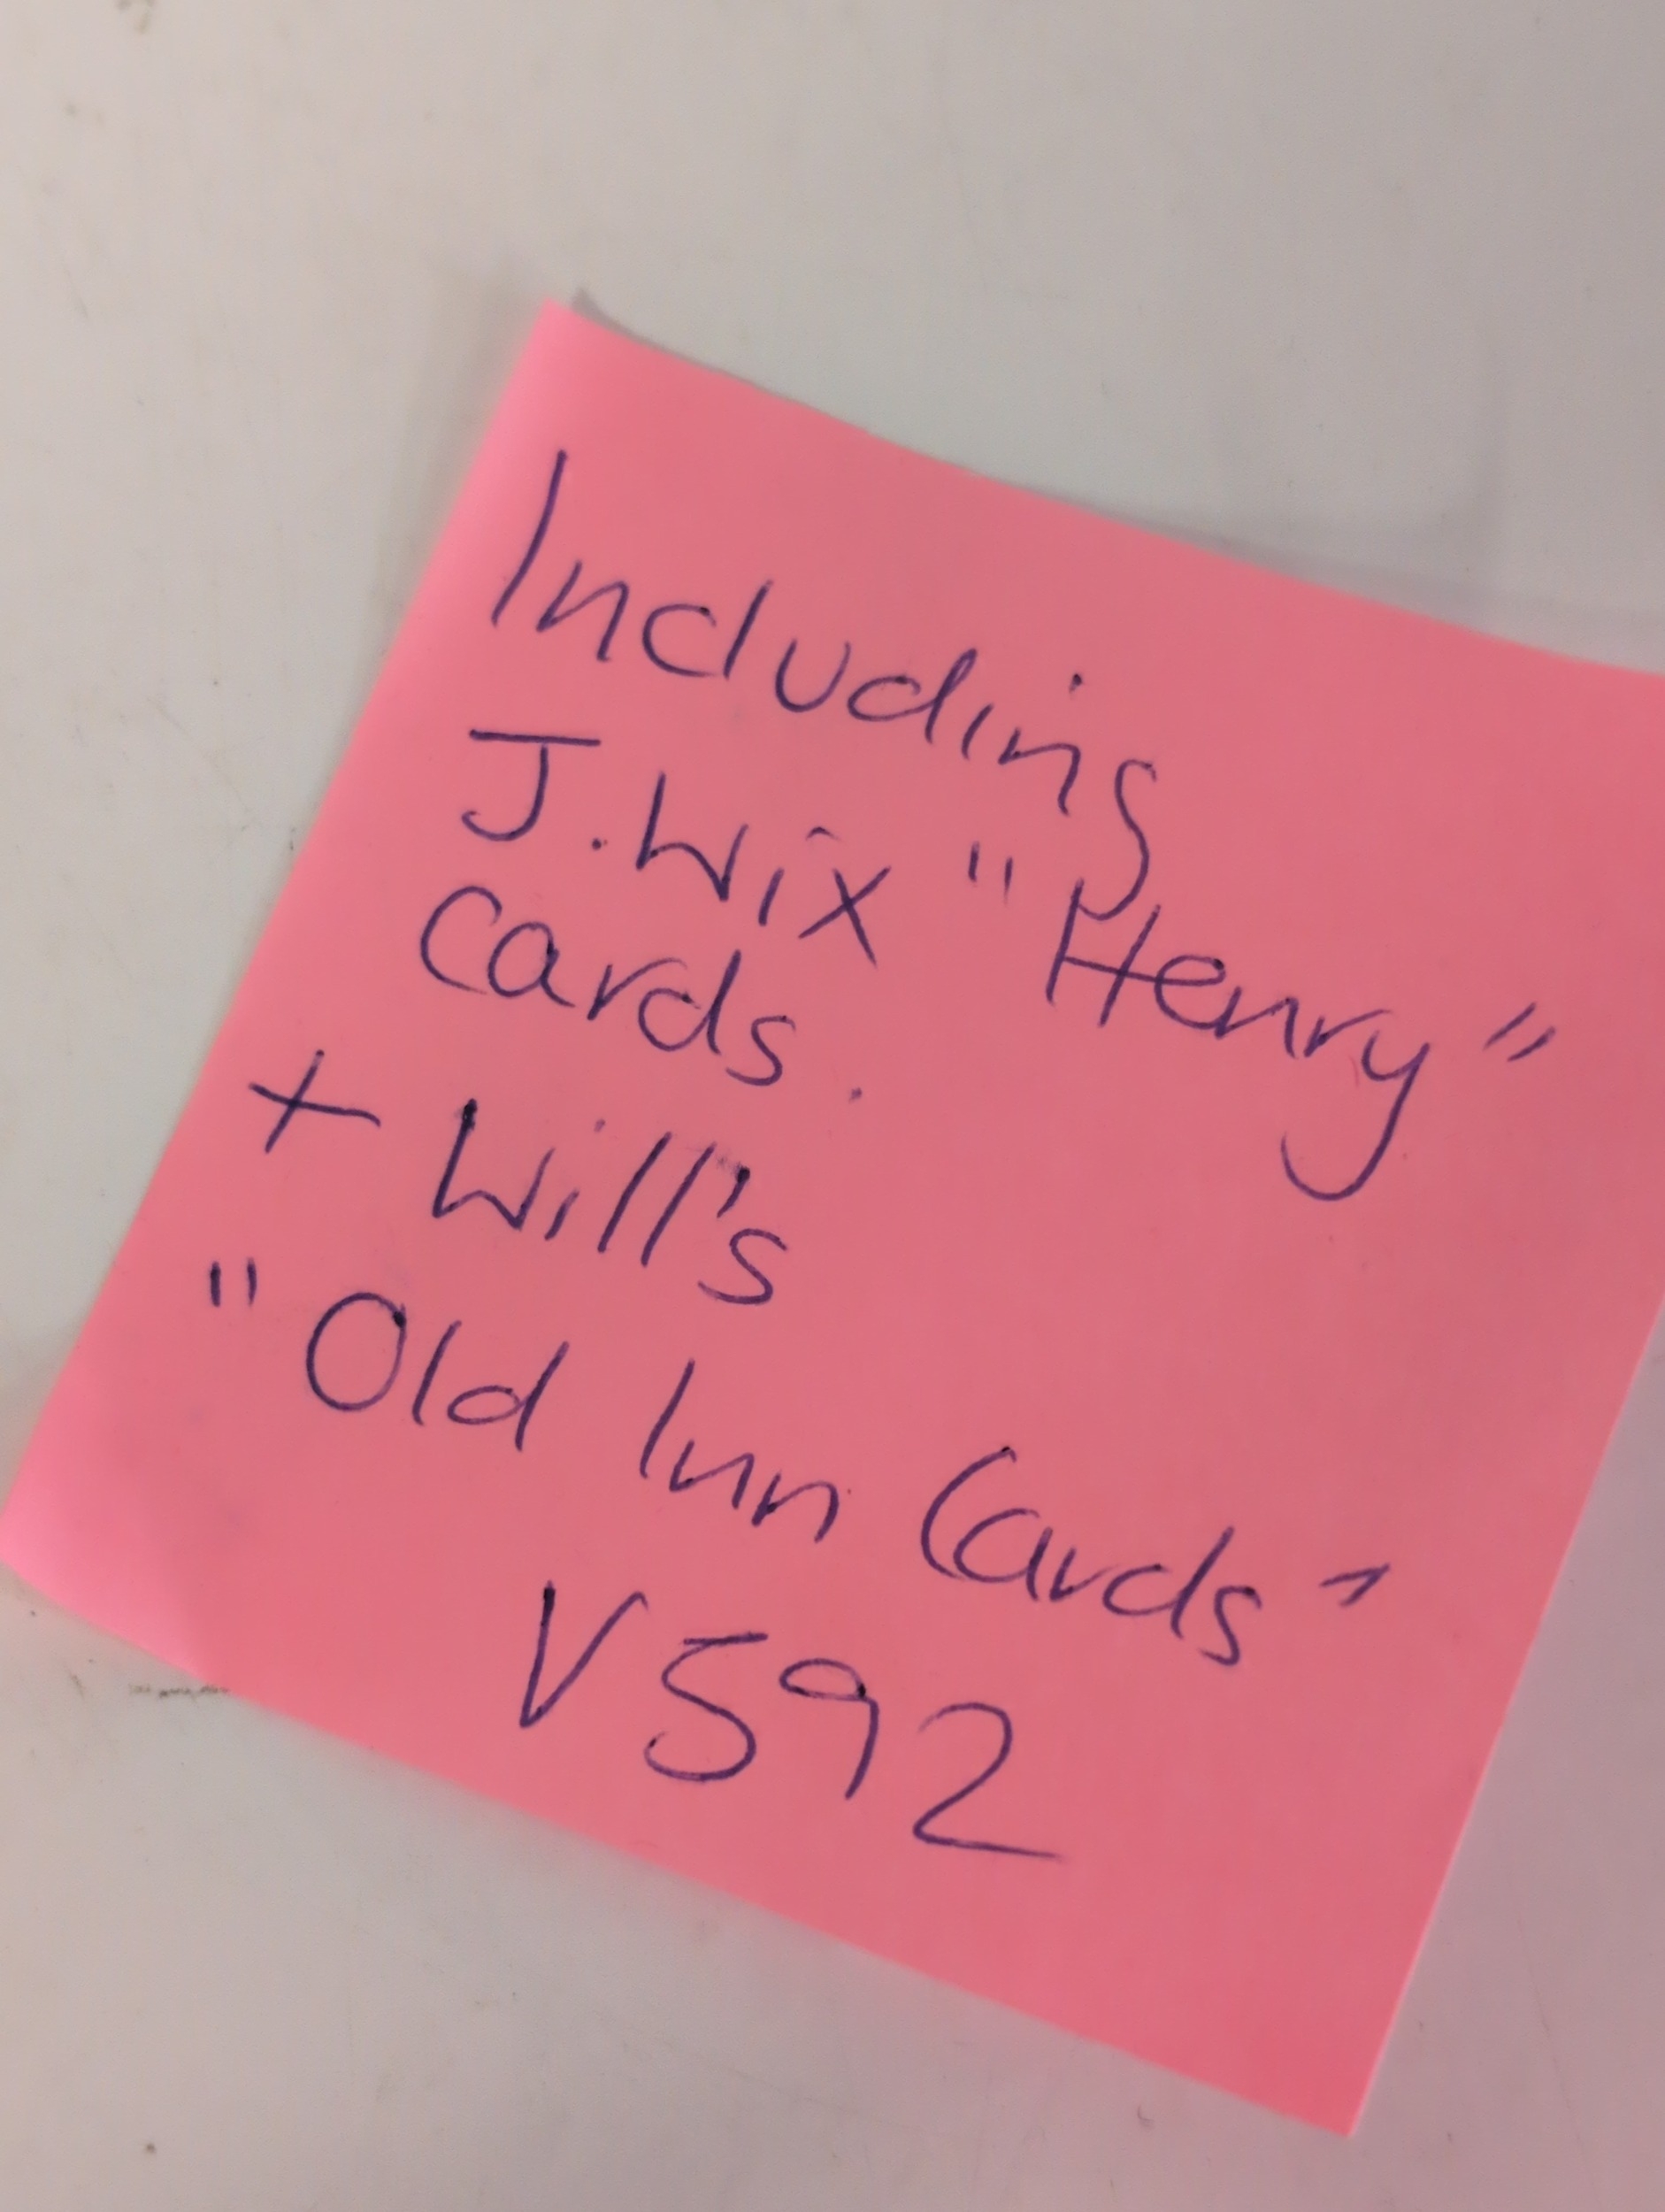 Including
J. Wix "Henry"
Cards.
+ Will's
"Old Inn Cards"
V592